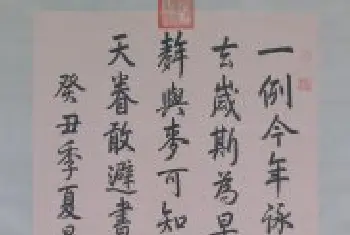 一例今年詠
去歲斯為早
麰與麥可知
天眷敢避書
癸丑季夏